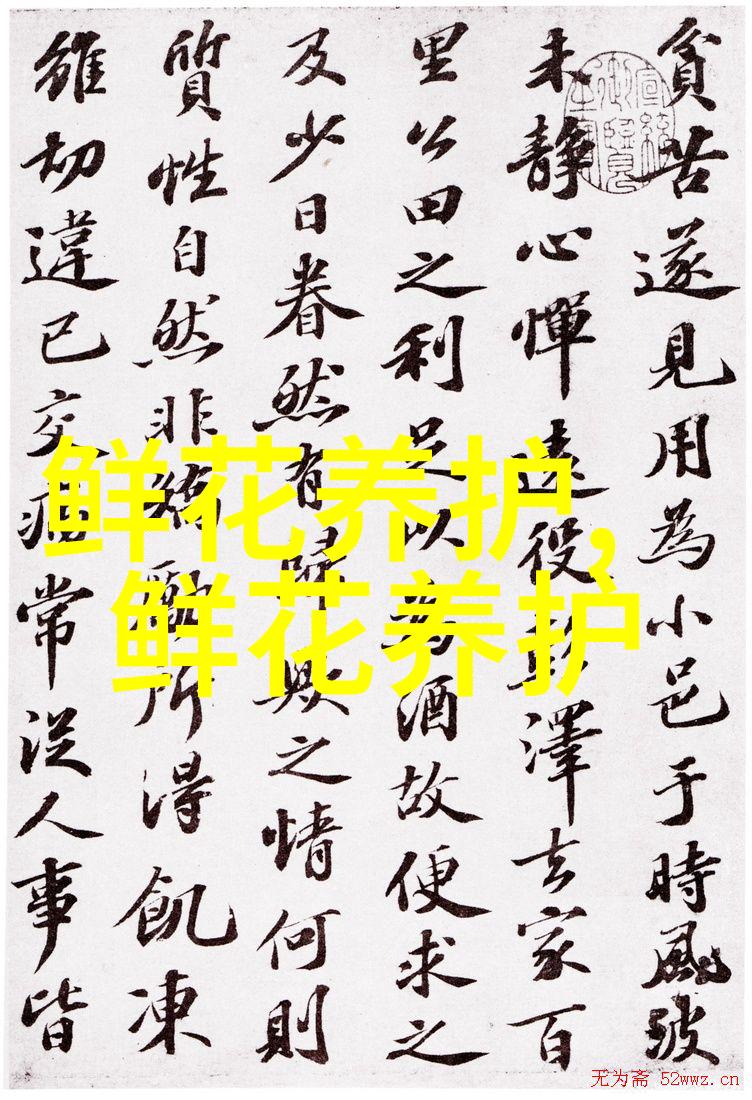 貧苦遂見用為小邑于時風波
未靜心憚遠役彭澤去家百
里公田之利足以為酒故便求之
及少日眷然有歸歟之情何則
質性自然非矯勵所得飢凍
雖切違已交病常從人事皆
鲜花养护,
鲜花养护
无为斋 52wwz.cn